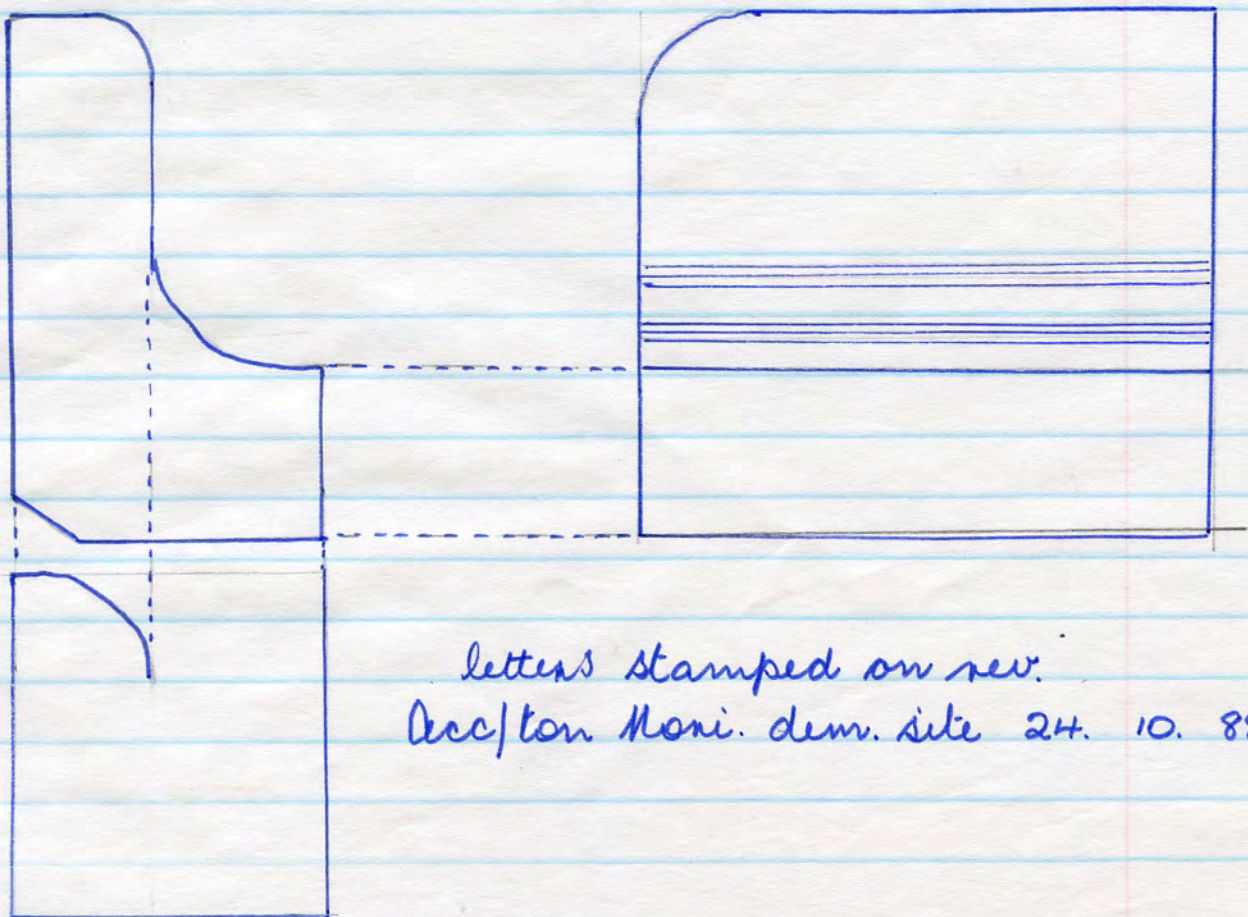 letters stamped on rev.
Acc/ton dem. site 24. 10.